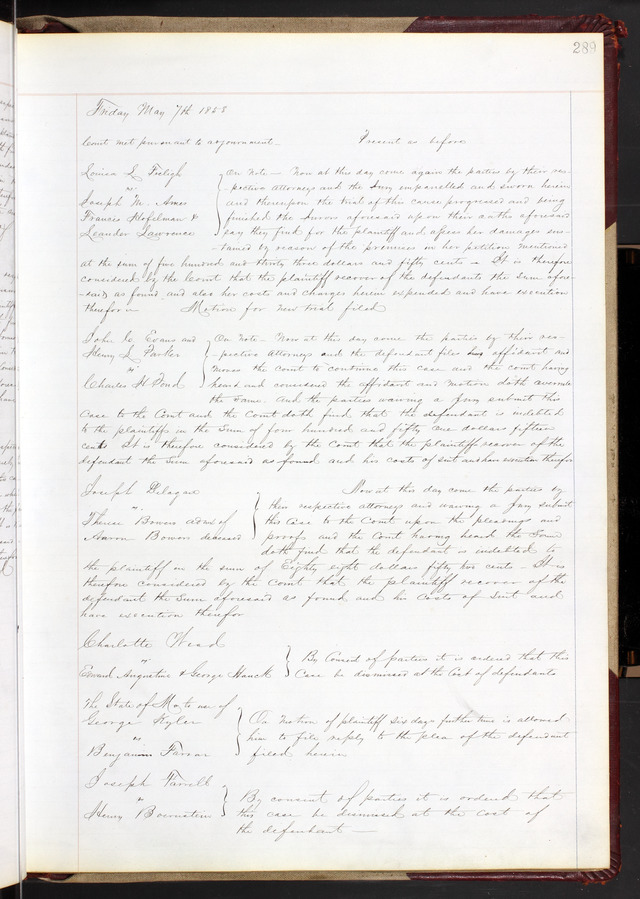 289
Friday May 7th 1858
Court met pursuant to adjournment — Present as before
Louisa L
vs
Joseph M. Ames
Frances &
Leander Lawrence
On Note — Now at this day come again the parties by their res-
-pective attorneys and the Jury empanelled and sworn herein
and thereupon the trial of this cause progressed and being
finished the Jurors aforesaid upon their oaths aforesaid
say they find for the plaintiff and assess her damages sus-
-tained by reason of the premises in her petition mentioned
at the sum of five hundred and thirty three dollars and fifty cents — It is therefore
considered by the Court that the plaintiff recover of the defendants the Sum afore
-said as found and also her costs and charges herein expended and have execution
therefor — Motion for new trial filed
John C. Evans and
Henry L Parker
vs
Charles H Pond
On Note — Now at this day come the parties by their res-
-pective attorneys and the defendant files affidavit and
moves the Court to continue this case and the court having
heard and considered the affidavit and motion doth overrule
the same. And the parties waiving a Jury submit this
Case to the Court and the Court doth find that the defendant is indebted
to the plaintiffs in the Sum of four hundred and fifty one dollars fifteen
cents It is therefore considered by the Court that the plaintiff recover of the
defendant the Sum aforesaid as found and his costs of suit and have execution therefor
Joseph
vs
Bowers admx of
Aaron Bowers deceased
Now at this day come the parties by
their respective attorneys and waiving a Jury submit
this Case to the Court upon the pleadings and
proofs and the Court having heard the Same
doth find that the defendant is indebted to
the plaintiff in the sum of Eighty eight dollars fifty two cents — It is
therefore considered by the Court that the plaintiff recover of the
defendant the Sum aforesaid as found and his Costs of Suit and
have execution therefor
Charlotte
vs
Augustine & George Hauck
By Consent of parties it is ordered that this
Case be dismissed at the Cost of defendants
The State of Mo, to use of
George Kyler
vs
Benjamin Farrar
On motion of plaintiff six days further time is allowed
him to file reply to the plea of the defendant
filed herein
Joseph Farrell
vs
Henry Boernstein
By consent of parties it is ordered that
this case be dismissed at the cost of
the defendant —